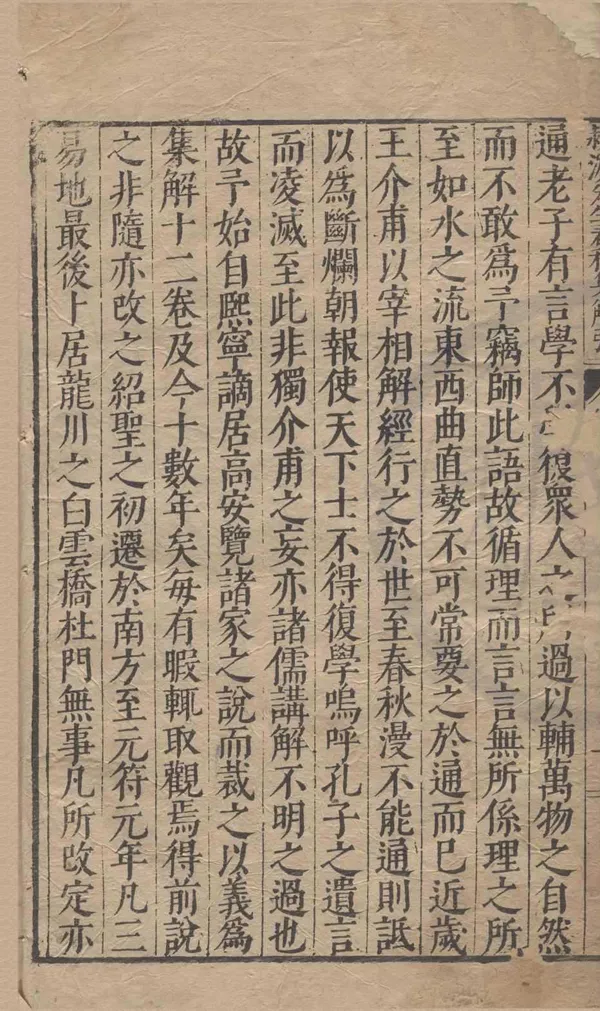 通老子有言學不復眾人之過以輔萬物之自然
而不敢爲予竊師此語故循理而言言無所係理之所
至如水之流東西曲直勢不可常要之於通而已近歲
王介甫以宰相解經行之於世至春秋漫不能通則詆
以爲斷爛朝報使天下士不得復學嗚呼孔子之遺言
而凌滅至此非獨介甫之妄亦諸儒講解不明之過也
故予始自熙寧謫居高安覽諸家之說而裁之以義爲
集解十二卷及今十數年矣每有暇輒取觀焉得前說
之非隨亦改之紹聖之初遷於南方至元符元年凡三
易地最後卜居龍川之白雲橋杜門無事凡所改定亦